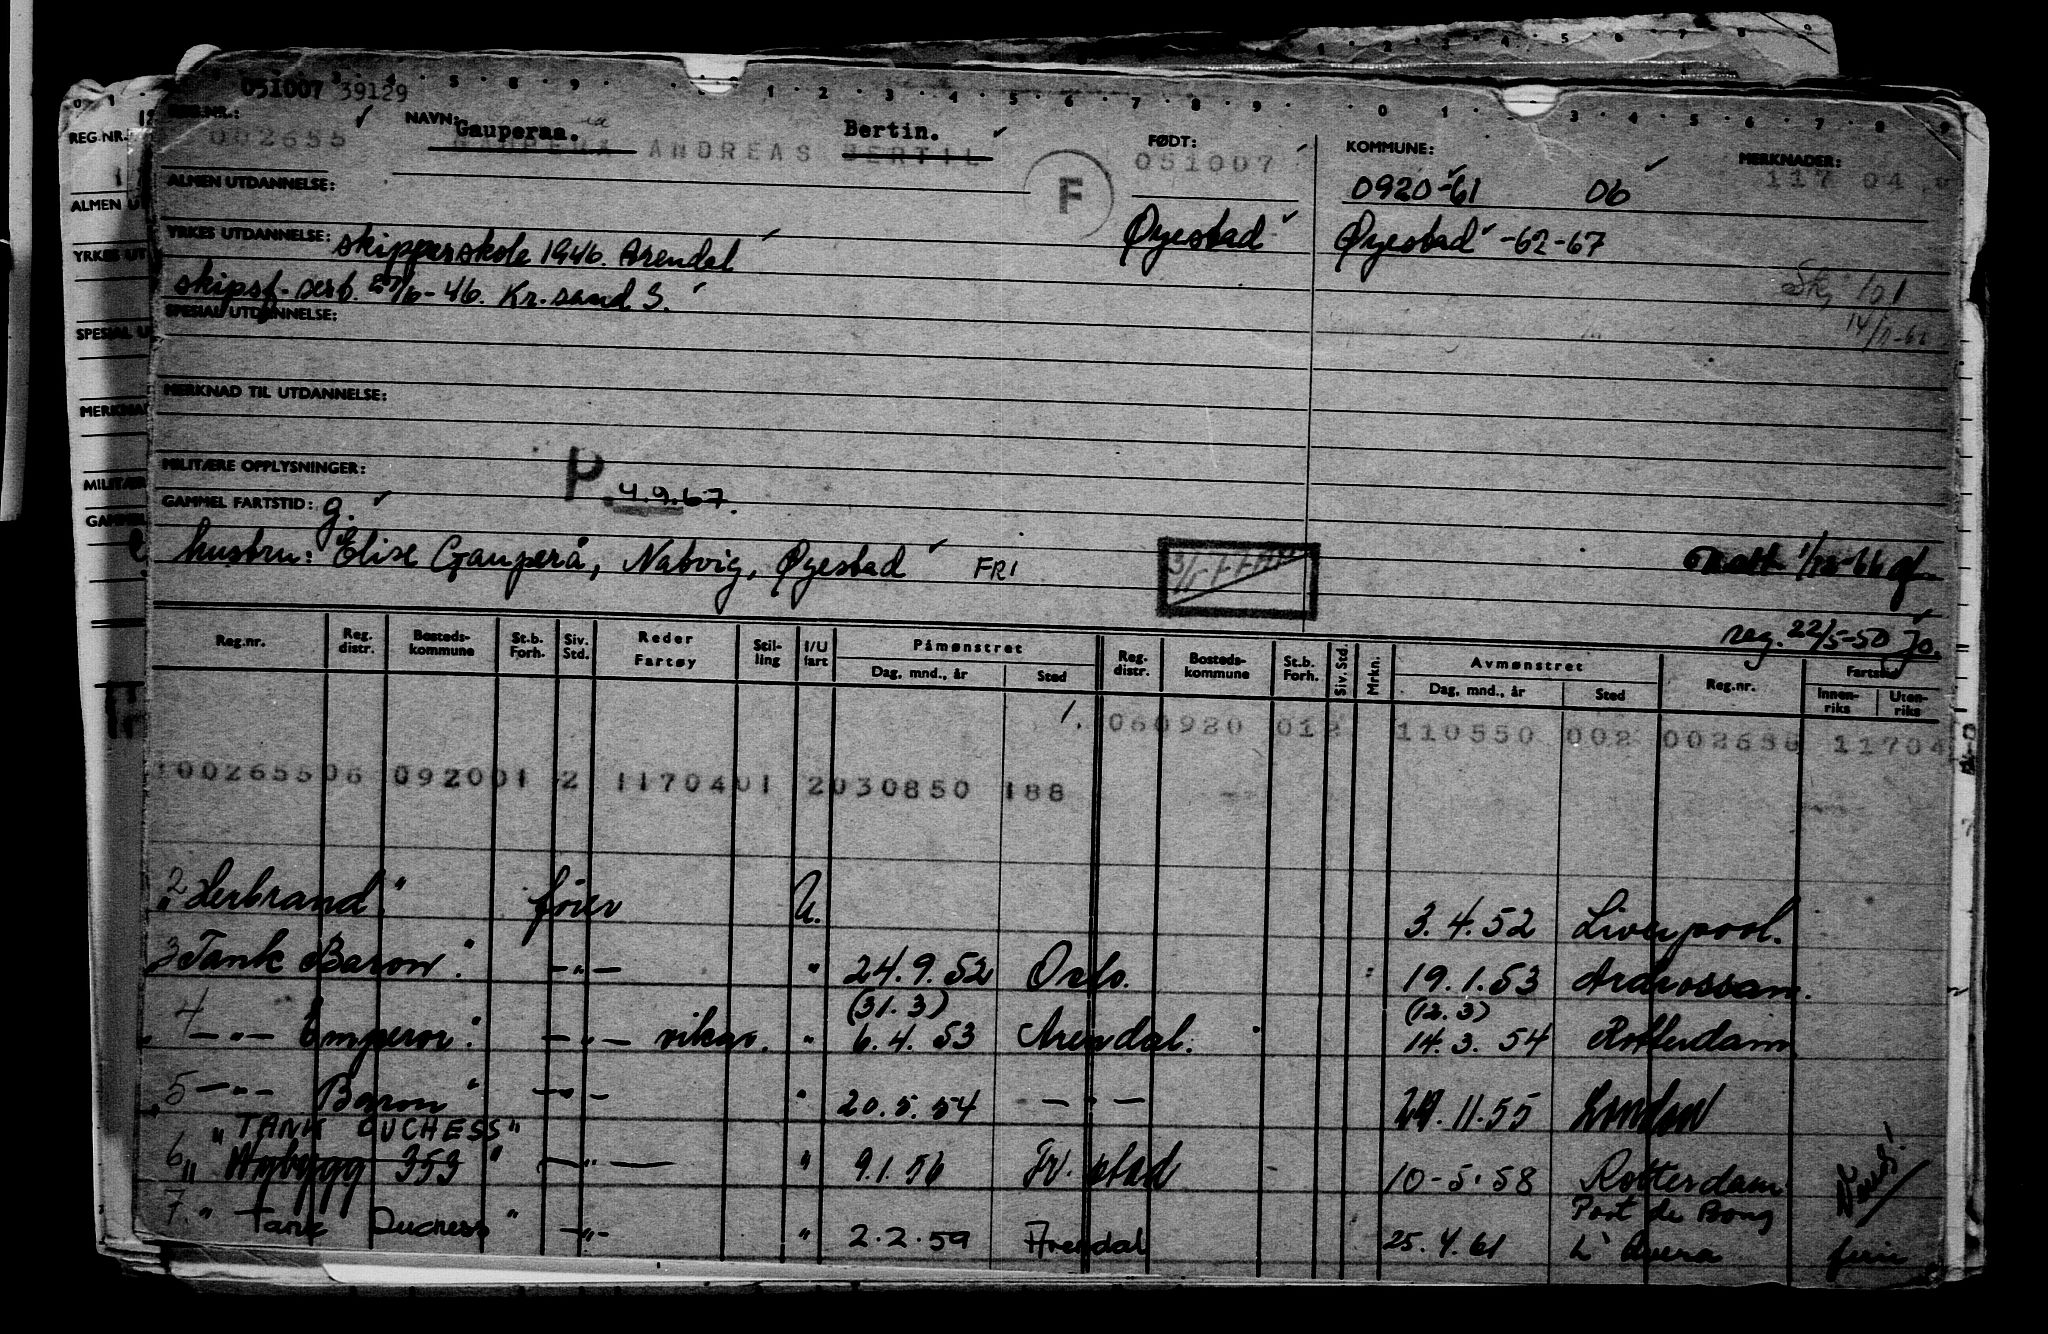 051007 39129
REG.NR.:
002655
NAVN:
Gauperaa. Bertin.
GAUPERA ANDREAS BERTIL
F
FØDT:
051007
KOMMUNE:
MERKNADER:
117 04
0920-61 06
ALMEN UTDANNELSE:
Øyestad
Øyestad -62-67
YRKES UTDANNELSE: skipperskole 1946. Arendal
skipsf.-serf. 27/6-46. Kr.sand S.
SPESIAL UTDANNELSE:
MERKNAD TIL UTDANNELSE:
MILITÆRE OPPLYSNINGER:
P 4.9.67.
GAMMEL FARTSTID: g.
hustru: Elise Gauperå, Natvig, Øyestad FRI
reg. 22/5-50 Jo.
Reg.nr. Reg. distr. Bosteds-kommune St.b. Forh. Siv. Std. Reder Fartøy Stil-ling I/U fart Påmønstret Dag, mnd., år Sted Reg. distr. Bosteds-kommune St.b. Forh. Siv. Std. Mrkn. Avmønstret Dag, mnd., år Sted Reg.nr. Fartstid Innen-riks Uten-riks
1. 060920 012 110550 002 002655 11704
100265506 092001 2 1170401 2030850 188
2 "Herbrand" fører U. 3.4.52 Liverpool.
3 Tank Baron" -"- " 24.9.52 Oslo. 19.1.53 Ardrossan.
(31.3) (12.3)
4 -"- Emperor" -"- vikar. " 6.4.53 Arendal. 14.3.54 Rotterdam
5 -"- Baron" -"- " 20.5.54 -"- 29.11.55 London
"TANK DUCHESS"
6 " Nybygg 353 " -"- " 9.1.56 Fr.stad 10-5-58 Rotterdam
7. " Tank Duchess " -"- " 2.2.59 Arendal 25.4.61 Port de Bouc
L'Avera ferie